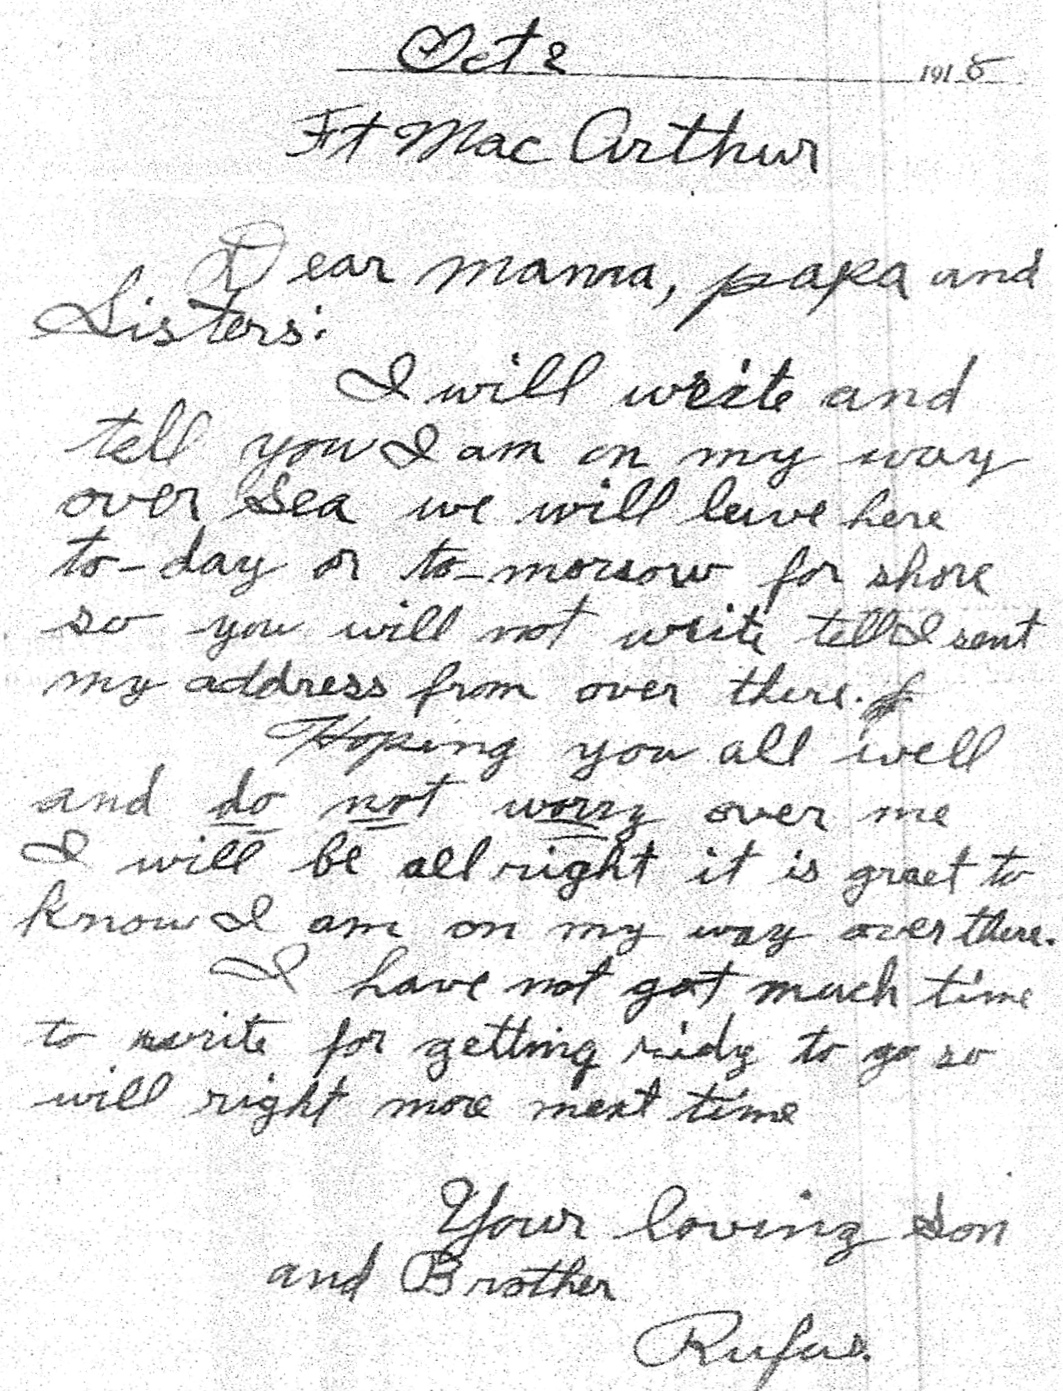 Oct 2 1918
Ft Mac Arthur
Dear mama, papa and
Sisters:
I will write and
tell you I am on my way
over Sea we will leave here
to-day or to-morrow for shore
so you will not write tell I sent
my address from over there.
Hoping you all well
and do not worry over me
I will be all right it is graet to
know I am on my way over there.
I have not got much time
to write for getting ridy to go so
will right more next time
Your loving son
and Brother
Rufus.